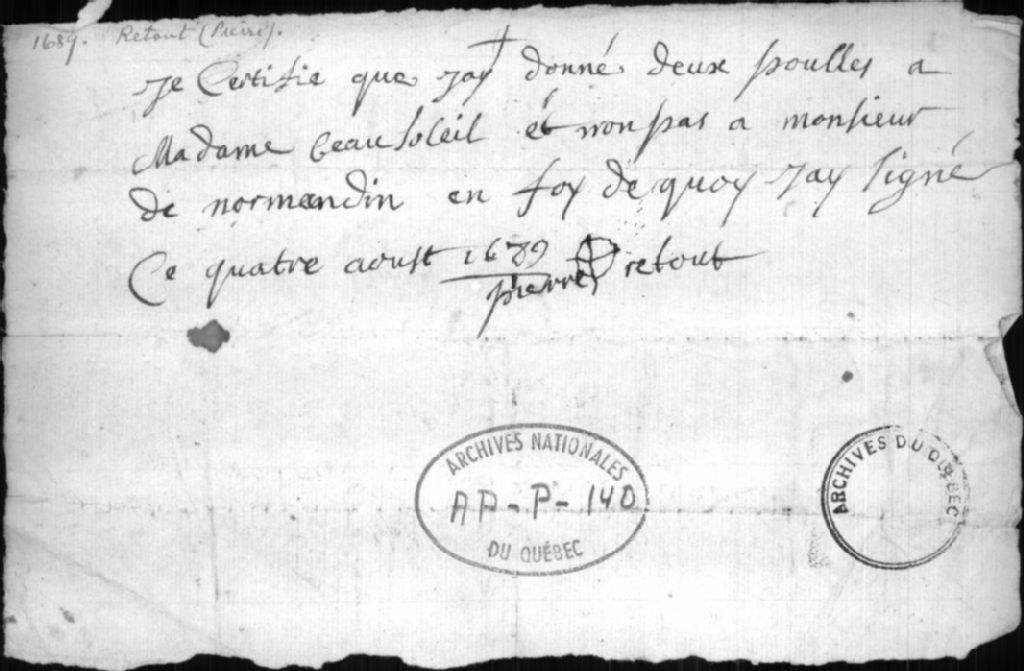 1689. Retout (Pierre).
Je Certifie que Jay donné deux poulles a
Madame beausoleil et non pas a monsieur
de normendin en foy de quoy Jay signé
Ce quatre aoust 1689 retout
pierre
ARCHIVES NATIONALES
AP-P-140
DU QUÉBEC
ARCHIVES DU QUÉBEC